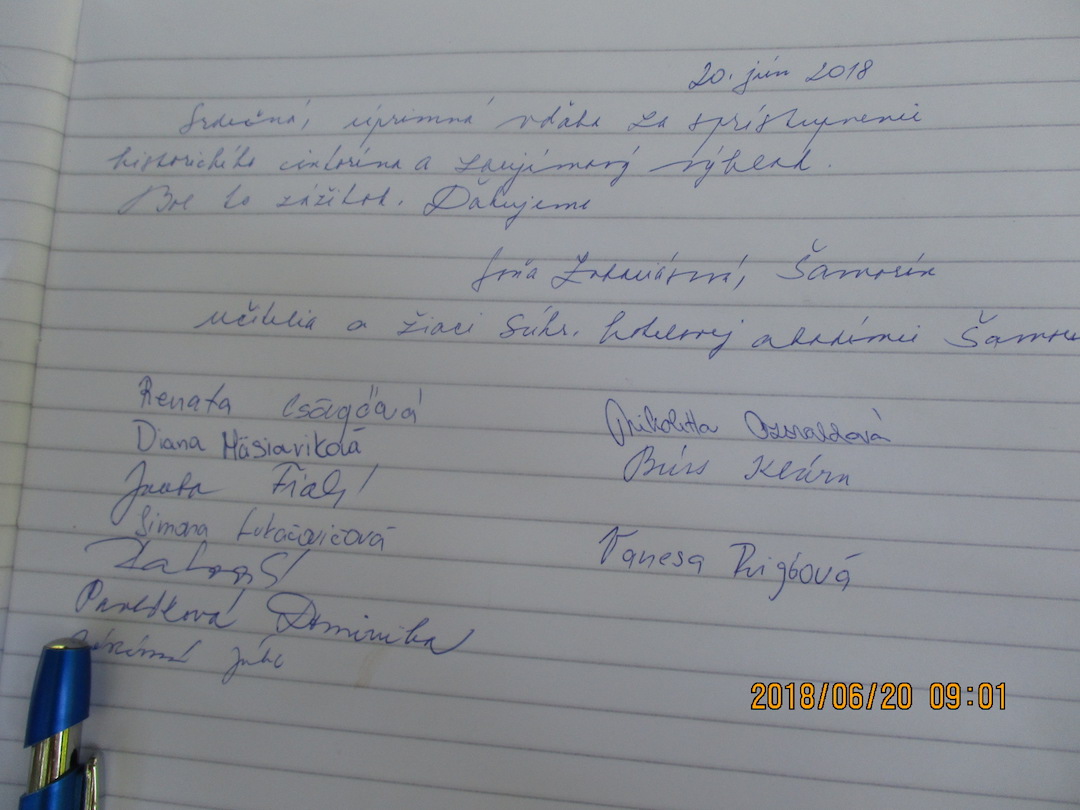 20. jún 2018
Srdečná, úprimná vďaka za sprístupnenie
historického cintorína a zaujímavý výklad.
Bol to zážitok. Ďakujeme
Šamorín
učitelia a žiaci Súkr. hotelovej akadémie
Renata Csögöová
Diana Mäsiariková
Fiala
Simona Lukačovičová
Dominika
Nikoletta Ozsvaldová
Klára
Vanesa Rigóová
2018/06/20 09:01